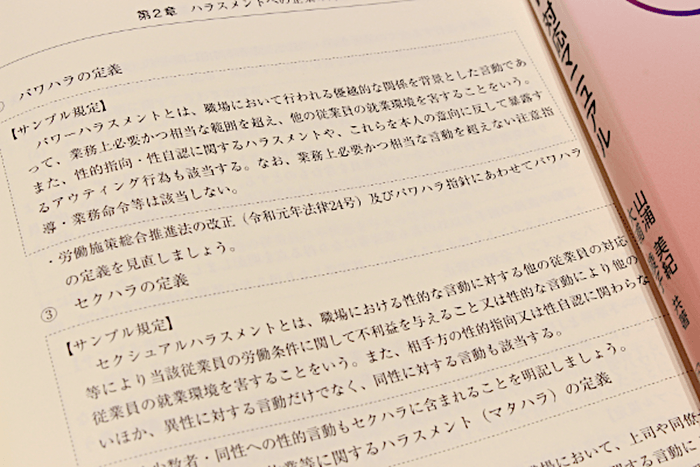 第2章 ハラスメントへの企業の
パワハラの定義
【サンプル規定】
パワーハラスメントとは、職場において行われる優越的な関係を背景とした言動であ
って、業務上必要かつ相当な範囲を超え、他の従業員の就業環境を害することをいう。
また、性的指向・性自認に関するハラスメントや、これらを本人の意向に反して暴露す
るアウティング行為も該当する。なお、業務上必要かつ相当な言動を超えない注意指
導・業務命令等は該当しない。
・労働施策総合推進法の改正（令和元年法律24号）及びパワハラ指針にあわせてパワハラ
の定義を見直しましょう。
③ セクハラの定義
【サンプル規定】
セクシュアルハラスメントとは、職場における性的な言動に対する他の従業員の対応
等により当該従業員の労働条件に関して不利益を与えること又は性的な言動により他の
従業員の就業環境を害することをいう。また、相手方の性的指向又は性自認に関わらな
いほか、異性に対する言動だけでなく、同性に対する言動も該当する。
少数者・同性への性的言動もセクハラに含まれることを明記しましょう。
業等に関するハラスメント（マタハラ）の定義
場において、上司や同僚
する言動に
対応マニュアル
山浦 美紀
共著